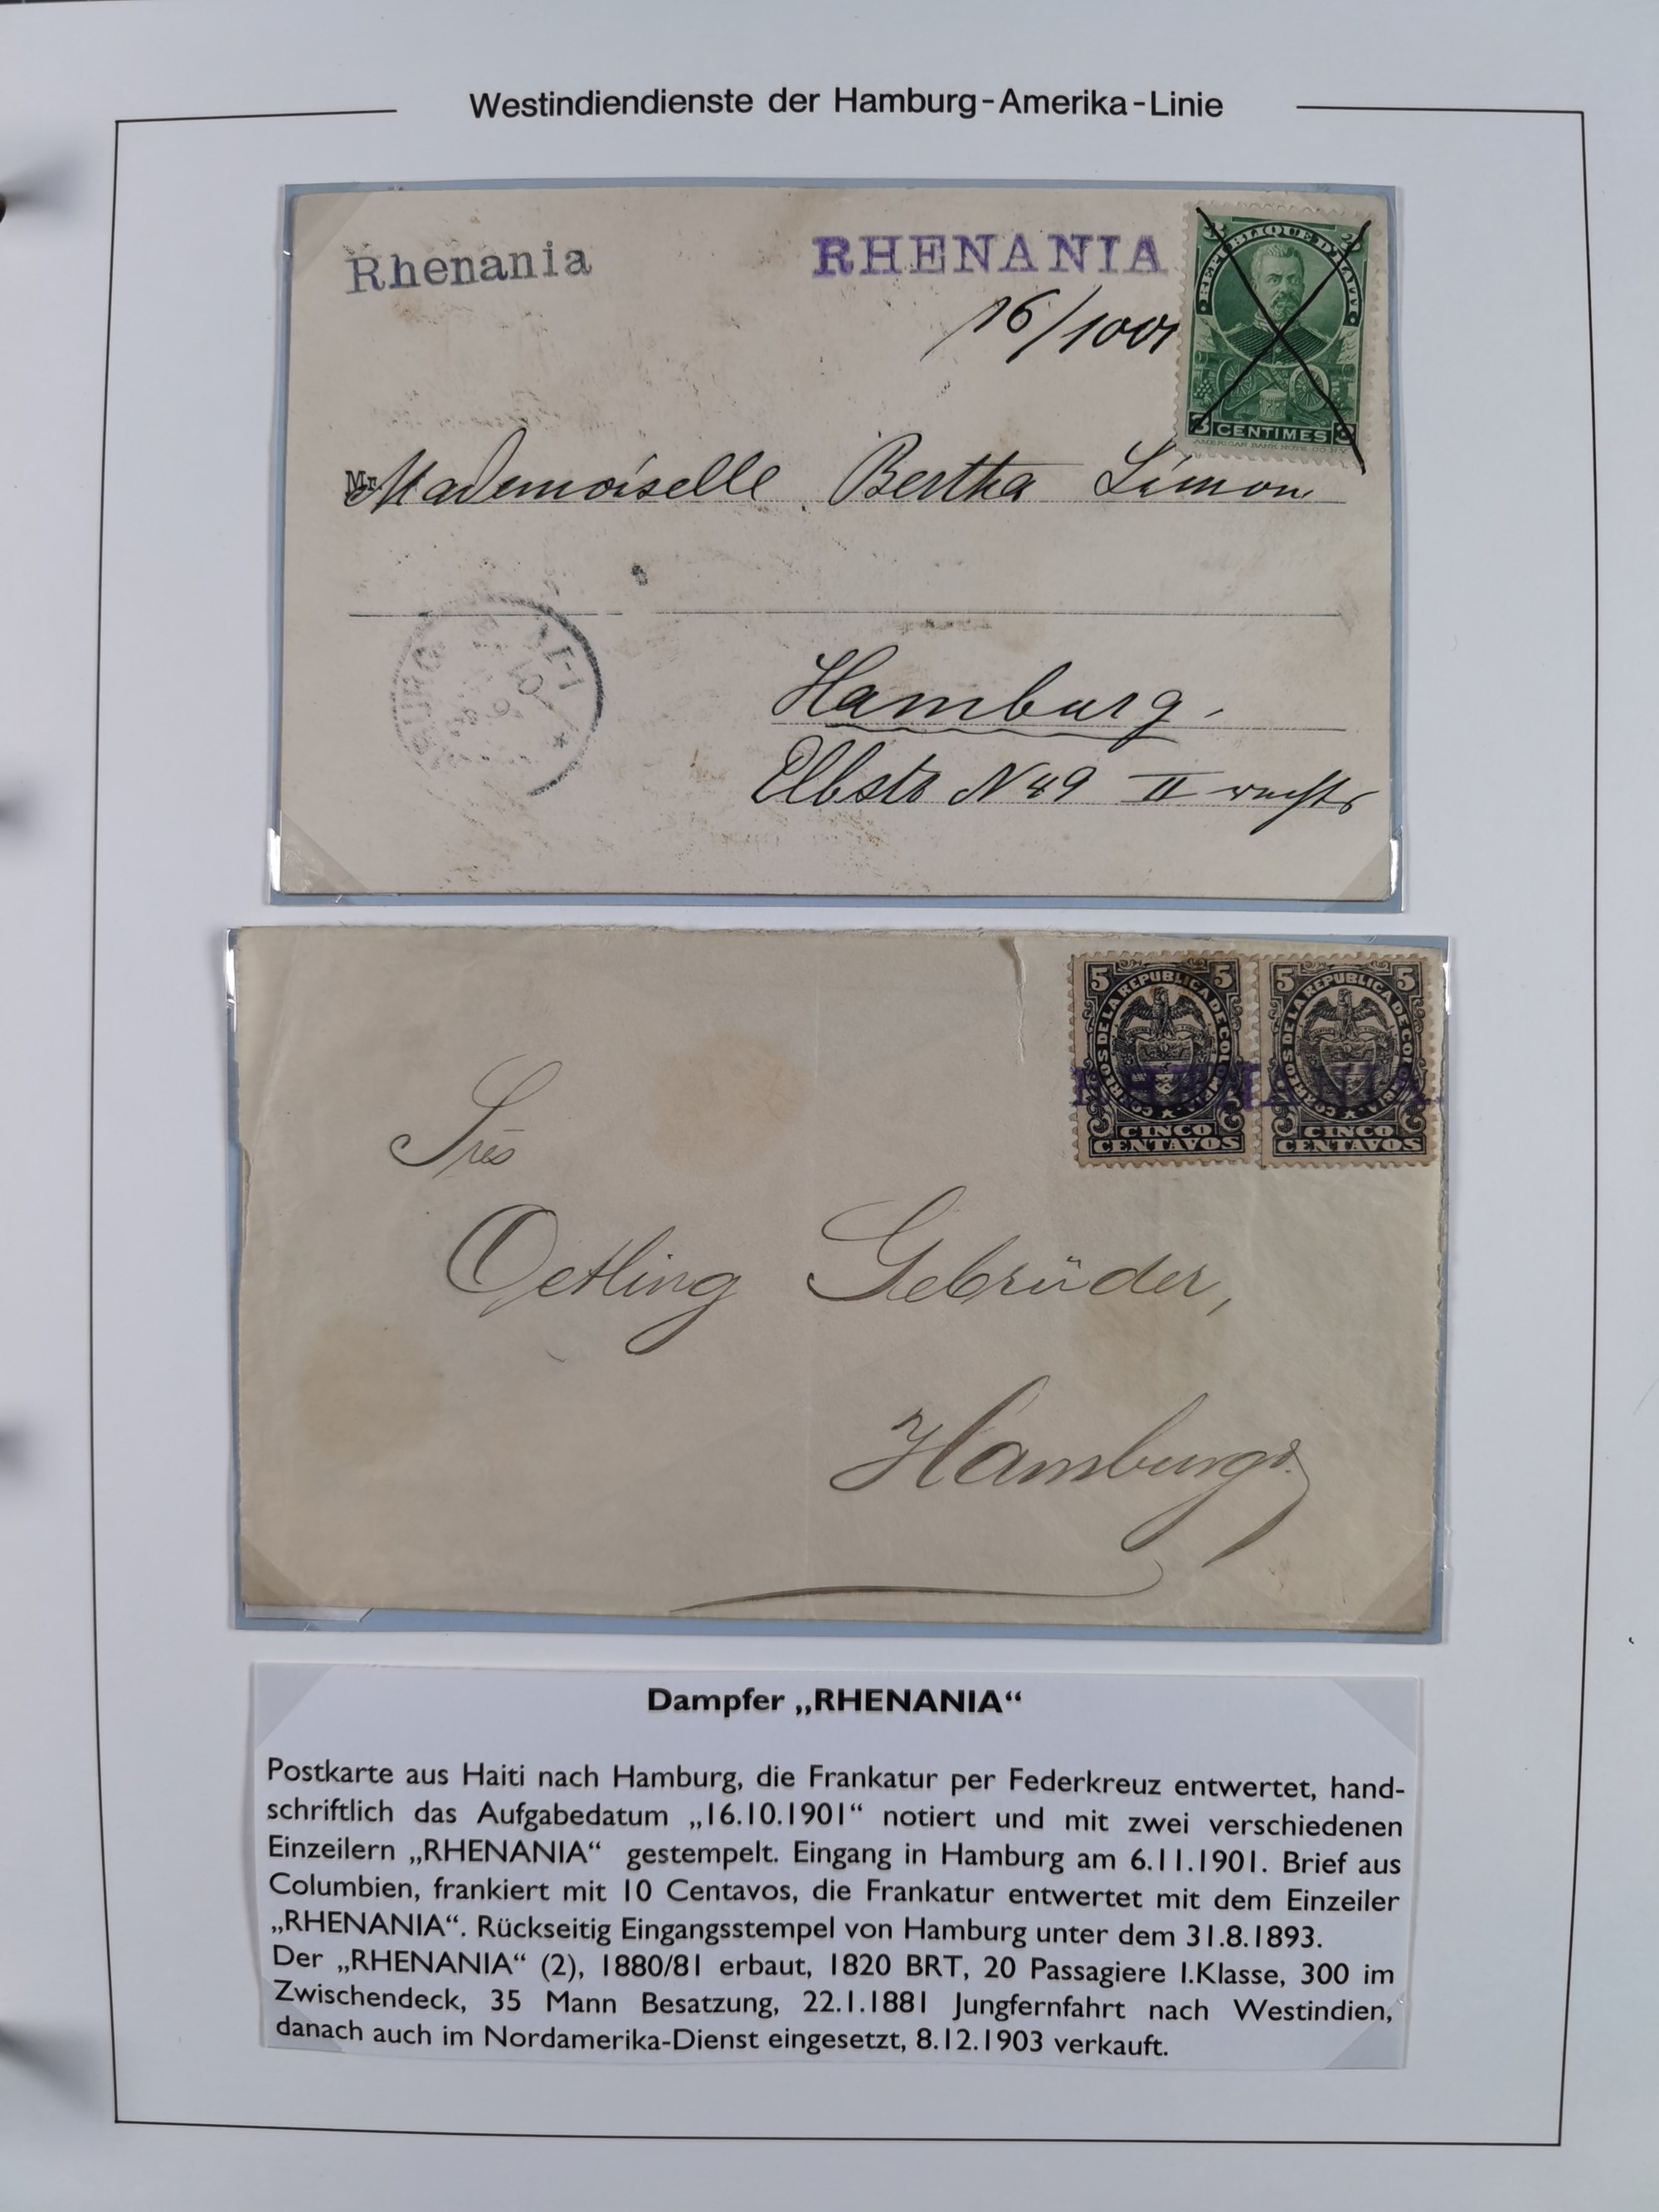 Westindiendienste der Hamburg-Amerika-Linie
Rhenania
RHENANIA
16/1001
REPUBLIQUE D'HAITI
3 CENTIMES 3
AMERICAN BANK NOTE CO. N.Y.
Mr.
Mademoiselle Bertha Simon
BURG
Hamburg.
Elbstr N 49 II rechts
5 5
CORREOS DE LA REPUBLICA DE COLOMBIA
CINCO
CENTAVOS
5 5
CORREOS DE LA REPUBLICA DE COLOMBIA
CINCO
CENTAVOS
RHENANIA
Srès
Oetling Gebrüder,
Hamburgo.
Dampfer „RHENANIA“
Postkarte aus Haiti nach Hamburg, die Frankatur per Federkreuz entwertet, hand-
schriftlich das Aufgabedatum „16.10.1901“ notiert und mit zwei verschiedenen
Einzeilern „RHENANIA“ gestempelt. Eingang in Hamburg am 6.11.1901. Brief aus
Columbien, frankiert mit 10 Centavos, die Frankatur entwertet mit dem Einzeiler
„RHENANIA“. Rückseitig Eingangsstempel von Hamburg unter dem 31.8.1893.
Der „RHENANIA“ (2), 1880/81 erbaut, 1820 BRT, 20 Passagiere I.Klasse, 300 im
Zwischendeck, 35 Mann Besatzung, 22.1.1881 Jungfernfahrt nach Westindien,
danach auch im Nordamerika-Dienst eingesetzt, 8.12.1903 verkauft.